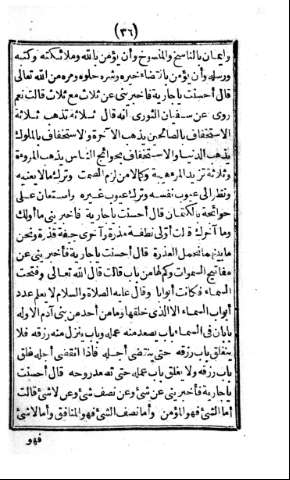 (٣٦)
وايمان بالناسخ والمنسوخ وأن يؤمن بالله وملائكته وكتبه
ورسله وأن يؤمن بالقضاء خيره وشره حلوه ومره من الله تعالى
قال أحسنت يا جارية فأخبريني عن ثلاث مع ثلاث قالت نعم
روى عن سفيان الثورى أنه قال ثلاثة تذهب ثلاثة
الاستخفاف بالصالحين يذهب الآخرة والاستخفاف بالملوك
يذهب الدنيا والاستخفاف بحوائج الناس يذهب المروءة
وثلاثة تزيد وكلام من لزم الصمت وترك مالا يعنيه
ونظر الى عيوب نفسه وترك عيوب غيره واستعان على
حوائجه بالكتمان قال أحسنت يا جارية فأخبريني ما أولك
وما آخرك قالت أولى نطفة مذرة وآخرى جيفة قذرة ونحن
ما بينهما نحمل العذرة قال أحسنت يا جارية فأخبريني عن
مفاتيح السموات وكم لها من باب قالت قال الله تعالى وفتحت
السماء فكانت أبوابا وقال عليه الصلاة والسلام لا يعلم عدد
أبواب السماء الا الذى خلقها وما من أحد من بنى آدم الا وله
بابان فى السماء باب يصعد منه عمله وباب ينزل منه رزقه فلا
ينغلق باب رزقه حتى ينقضى أجله فاذا انقضى أجله غلق
باب رزقه ولا يغلق باب عمله حتى تصعد روحه قال أحسنت
يا جارية فأخبريني عن شئ وعن نصف شئ وعن لا شئ قالت
أما الشئ فهو المؤمن وأما نصف الشئ فهو المنافق وأما لا شئ
فهو